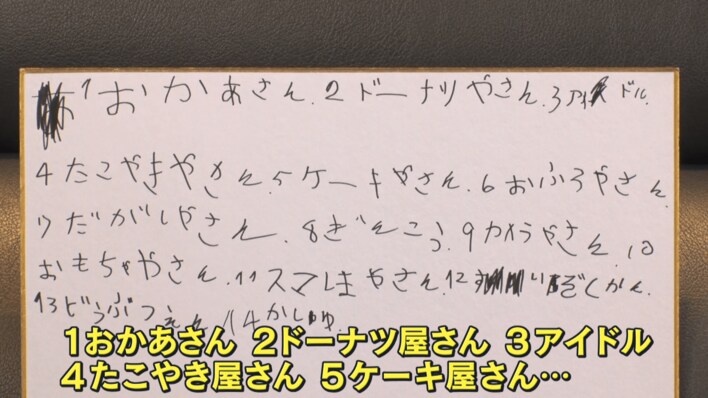 1おかあさん.2ドーナツやさん.3アイドル.
4たこやきやさん.5ケーキやさん.6おふろやさん.
7だがしやさん.8ぎんこう.9カメラやさん.10
おもちゃやさん.11スマほやさん.12すいぞくかん.
13どうぶつえん.14かしゅ.
1おかあさん 2ドーナツ屋さん 3アイドル
4たこやき屋さん 5ケーキ屋さん…